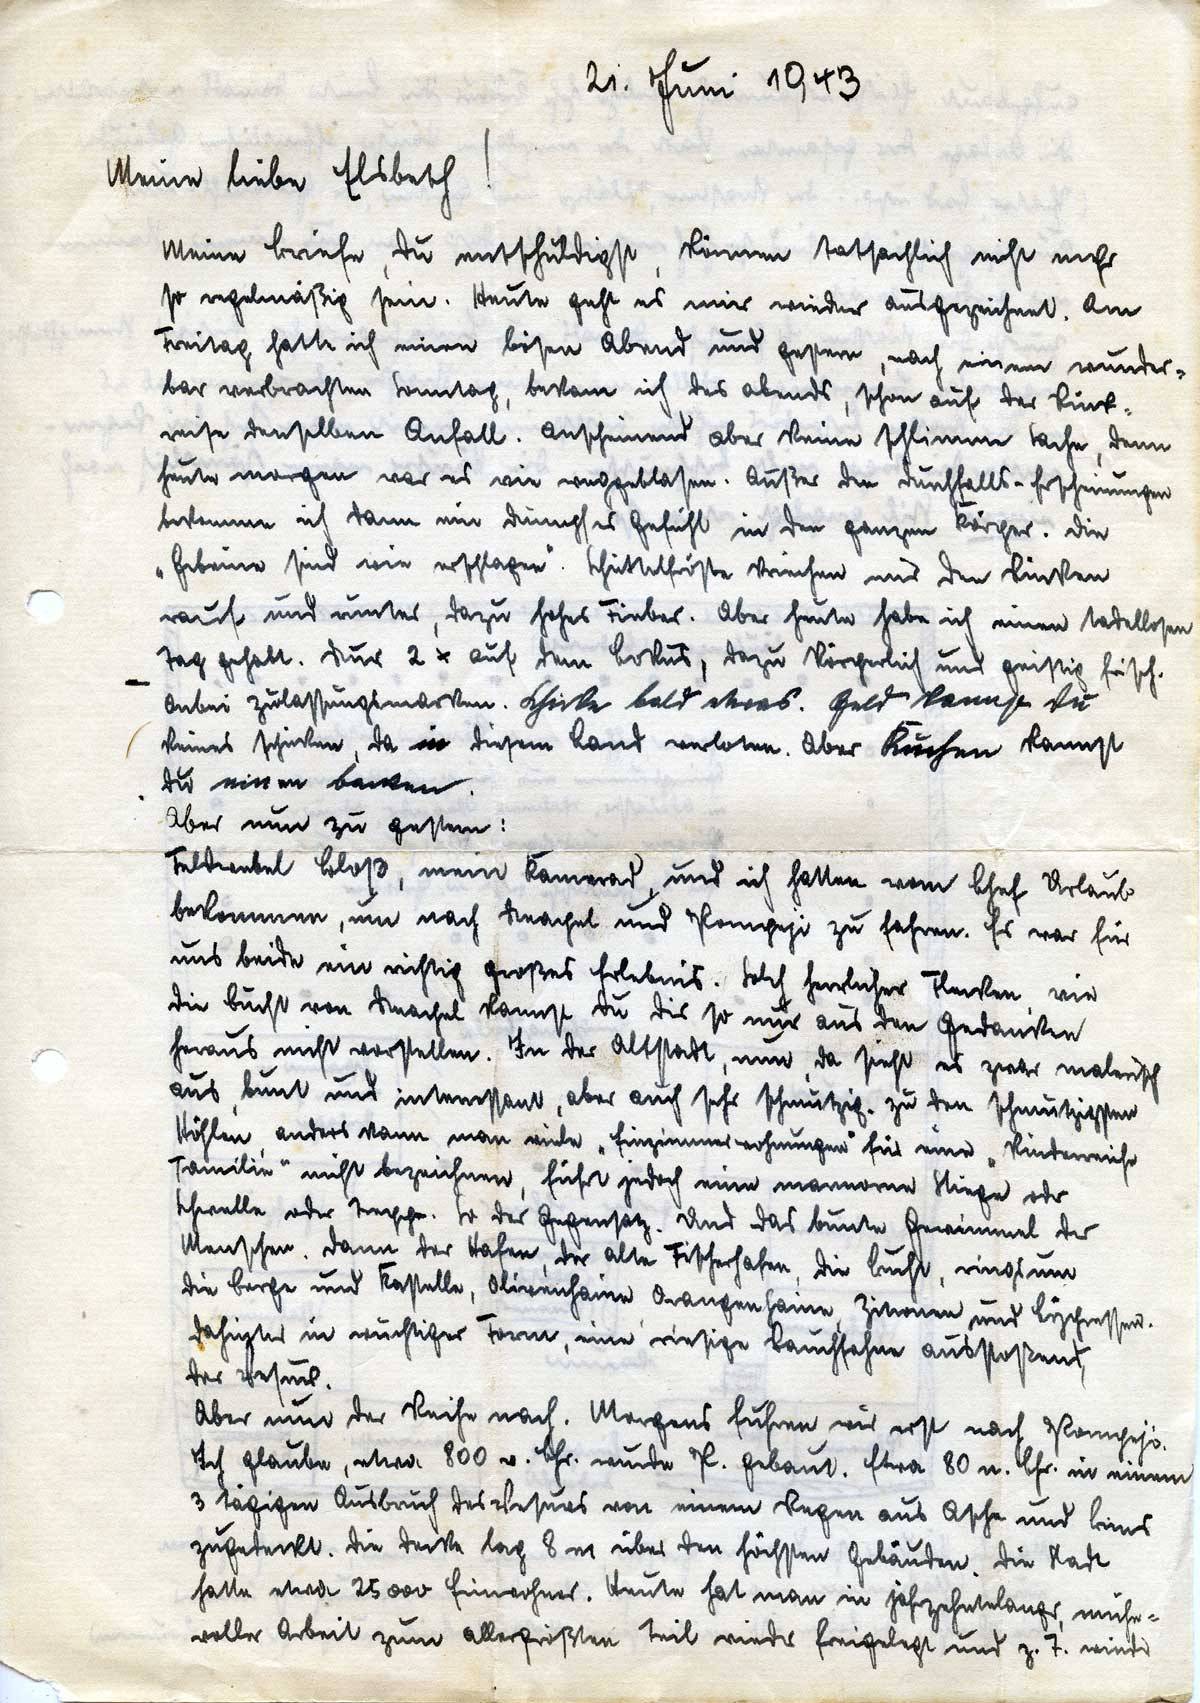 21. Juni 1943
Meine liebe Elsbeth!
Meine Briefe, Du entschuldigst, können tatsächlich nicht mehr
so regelmäßig sein. Heute geht es mir wieder ausgezeichnet. Am
Freitag hatte ich einen bösen Abend und gestern, nach einem wunder-
bar verbrachten Sonntag, bekam ich des abends, schon auf der Rück-
reise denselben Anfall. Anscheinend aber keine schlimme Sache, denn
heute morgen war es wie weggeblasen. Außer den Durchfalls-Erscheinungen
bekomme ich dann ein dumpfes Gefühl in den ganzen Körper. Die
„Gebeine sind wie erschlagen“. Schüttelfröste kriechen mir den Rücken
rauf und runter, dazu hohes Fieber. Aber heute habe ich einen tadellosen
Tag gehabt. Nur 2 x auf dem Lokus, dazu körperlich und geistig frisch.
Anbei Zulassungsmarken. Schicke bald etwas. Geld kannst Du
keines schicken, da in diesem Land verboten. Aber Kuchen kannst
Du einen backen.
Aber nun zu gestern:
Feldwebel Bloß, mein Kamerad, und ich hatten vom Chef Urlaub
bekommen, um nach Neapel und Pompeji zu fahren. Es war für
uns beide ein richtig großes Erlebnis. Solch herrlicher Flecken wie
die Bucht von Neapel kannst Du Dir so nur aus den Gedanken
heraus nicht vorstellen. In der Altstadt, nun, da sieht es zwar malerisch
aus, bunt und interessant, aber auch sehr schmutzig. Zu den schmutzigsten
Höhlen, anders kann man viele „Einzimmerwohnungen“ für eine „kinderreiche
Familie“ nicht bezeichnen, führt jedoch eine marmorne Stiege oder
Schwelle oder Treppe. So der Gegensatz. Und das bunte Gewimmel der
Menschen. Dann der Hafen, der alte Fischerhafen, die Bucht, ringsum
die Berge und Kastelle, Olivenhaine Orangenhaine, Zitronen und Zypressen.
Dahinter in wuchtiger Form, eine riesige Rauchfahne ausstoßend,
der Vesuv.
Aber nun der Reihe nach. Morgens fuhren wir erst nach Pompeji.
Ich glaube, etwa 800 v. Chr. wurde P. gebaut. Etwa 80 n. Chr. in einem
3 tägigen Ausbruch des Vesuvs von einem Regen aus Asche und Bims
zugedeckt. Die Decke lag 8 m über den höchsten Gebäuden. Die Stadt
hatte etwa 25 000 Einwohner. Heute hat man in jahrzehntelanger, mühe-
voller Arbeit zum allergrößten Teil wieder freigelegt und z. T. wieder